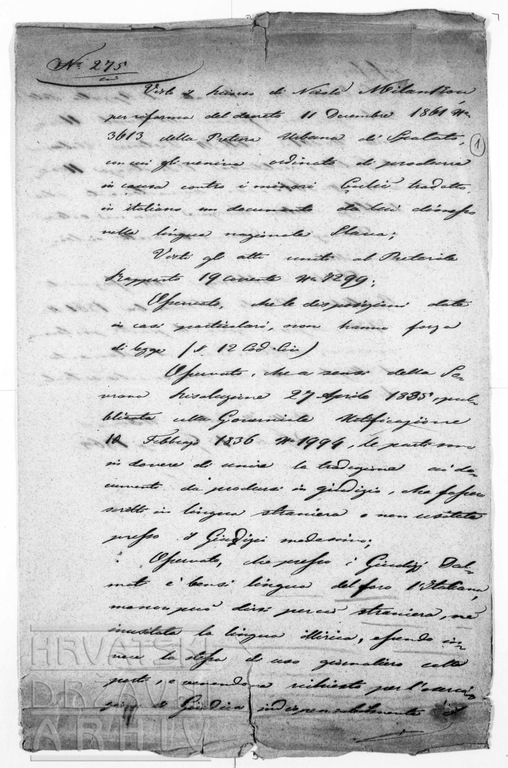 N.º 275
1
Visto il ricorso di Nicolò
per riforma del decreto 11 Decembre 1861 N.º
3613 della Pretura Urbana di Spalato,
con cui gli veniva ordinato di produrre
in causa contro i minori tradotto
in italiano un documento da lui dimesso
nella lingua nazionale Slava;
Visti gli atti uniti al Pretorile
Rapporto 19 corrente N.º 7299;
Osservato, che le disposizioni date
in casi particolari, non hanno forza
di legge (§. 12 Cod. Civ.)
Osservato, che a senso della So-
vrana Risoluzione 27 Aprile 1835, pub-
blicata colla Governiale Notificazione
Febbrajo 1836 N.º 1994, le parti sono
in dovere di unire la traduzione ai do-
cumenti da prodursi in giudizio, che fossero
scritti in lingua straniera e non usitata
presso il Giudizio medesimo;
Osservato, che presso i Giudizj Dal-
mati è bensì lingua del foro l'Italiana,
ma non può dirsi perciò straniera, nè
inusitata la lingua illirica, essendo in-
vece la stessa di uso giornaliero colle
parti, e venendo richiesta per l'eser-
di Giudice indispensabilmente
HRVATSKI
DRŽAVNI
ARHIV